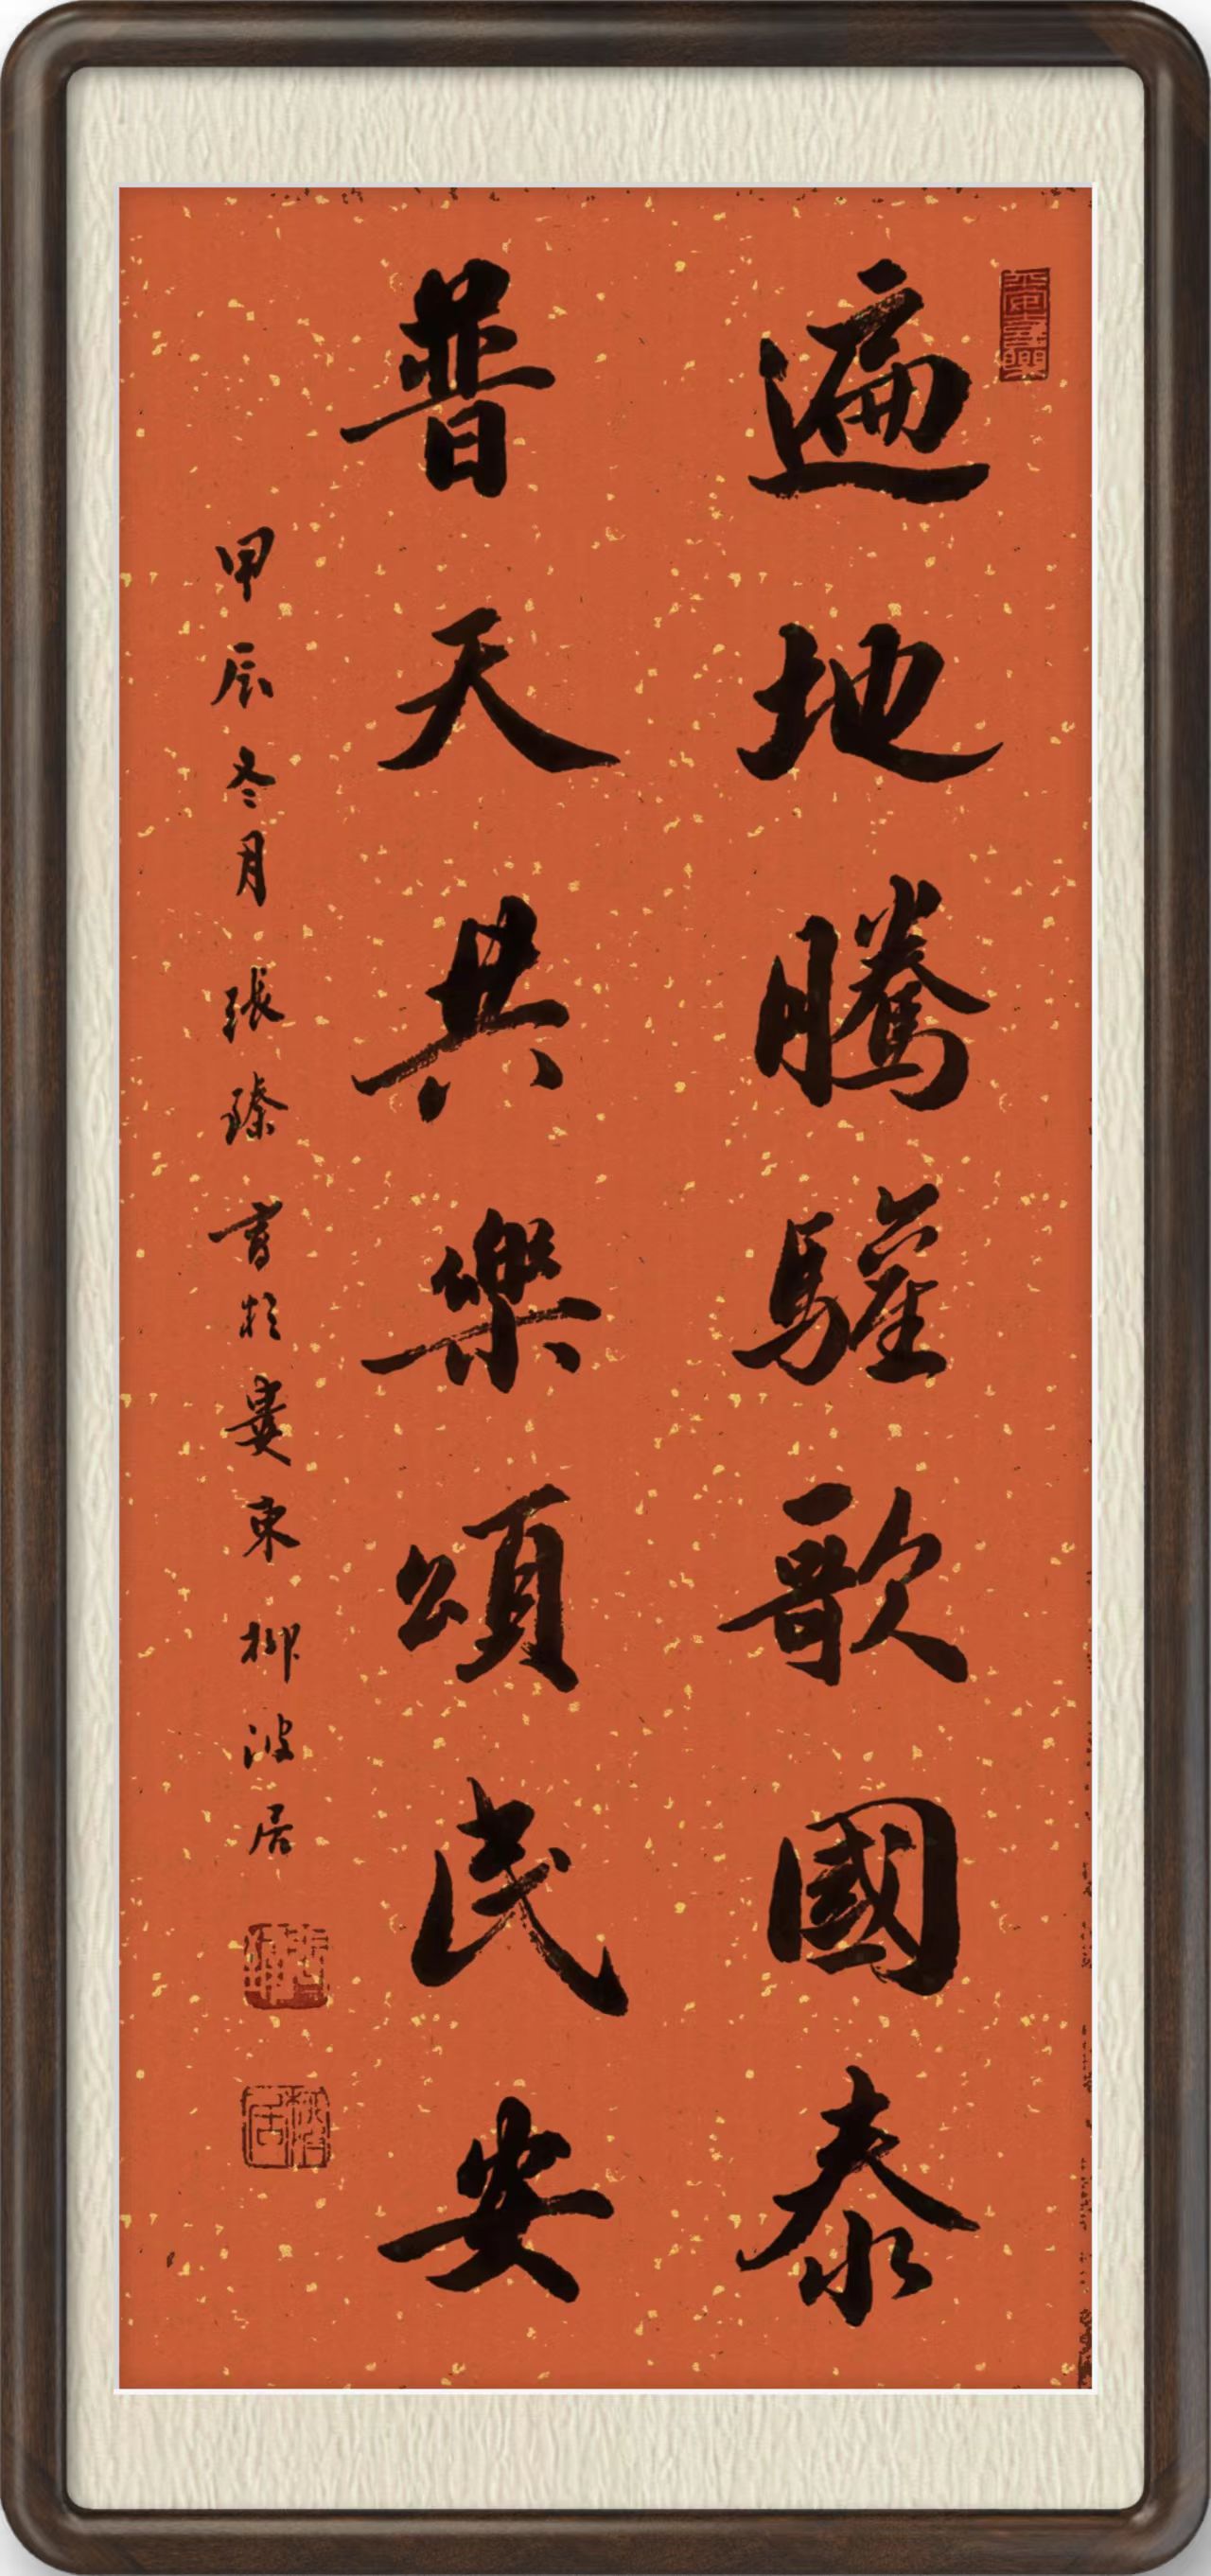 遍地騰驩歌國泰
普天共樂頌民安
甲辰冬月張臻書於婁東柳波居